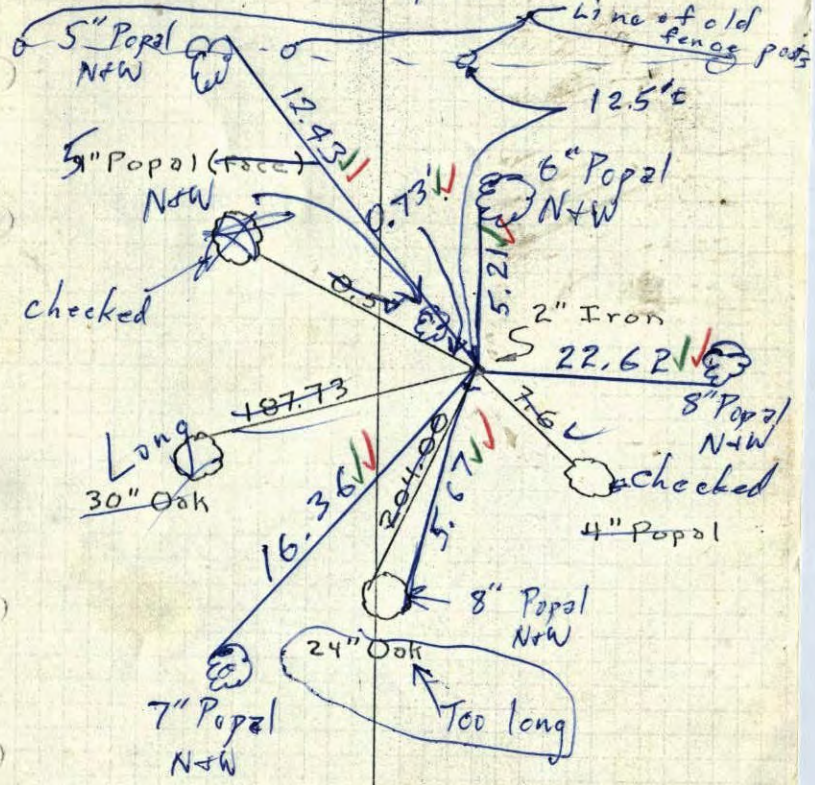 Line of old
fence posts
5" Popal
N+W
12.5'±
12.43
5" Popal (face)
N+W
0.73'
6" Popal
N+W
5.21
checked
0.5
2" Iron
22.62
8" Popal
N+W
187.73
7.6
Long
30" Oak
checked
4" Popal
16.36
204.00
5.67
8" Popal
N+W
24" Oak
Too long
7" Popal
N+W